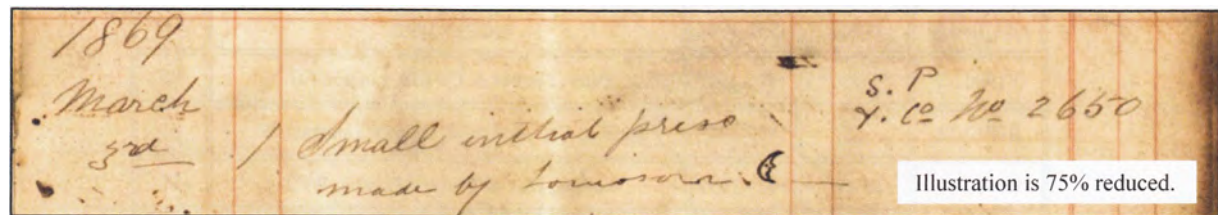 1869
March
3rd / Small initial press
made by
S. P
Y. Co No 2650
Illustration is 75% reduced.